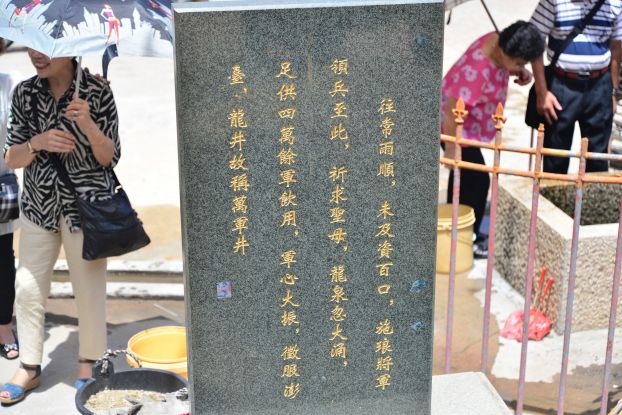 往常雨順，未及資百口，施琅將軍
領兵至此，祈求聖母，龍泉忽大涌，
足供四萬餘軍飲用，軍心大振，徵服澎
臺，龍井故稱萬軍井